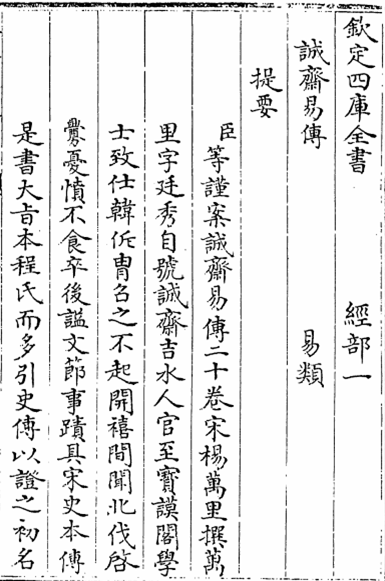 欽定四庫全書　經部一
誠齋易傳　易類
提要
臣等謹案誠齋易傳二十卷宋楊萬里撰萬
里字廷秀自號誠齋吉水人官至寶謨閣學
士致仕韓侂胄召之不起開禧間聞北伐啓
釁憂憤不食卒後諡文節事蹟具宋史本傳
是書大旨本程氏而多引史傳以證之初名